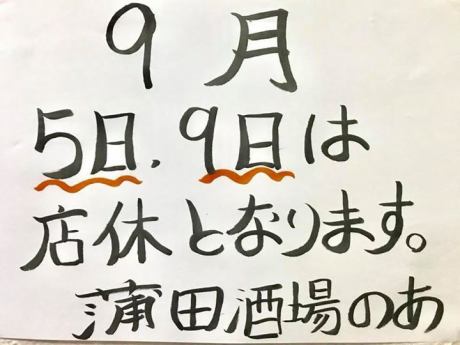 9月
5日.9日は
店休となります。
蒲田酒場のあ